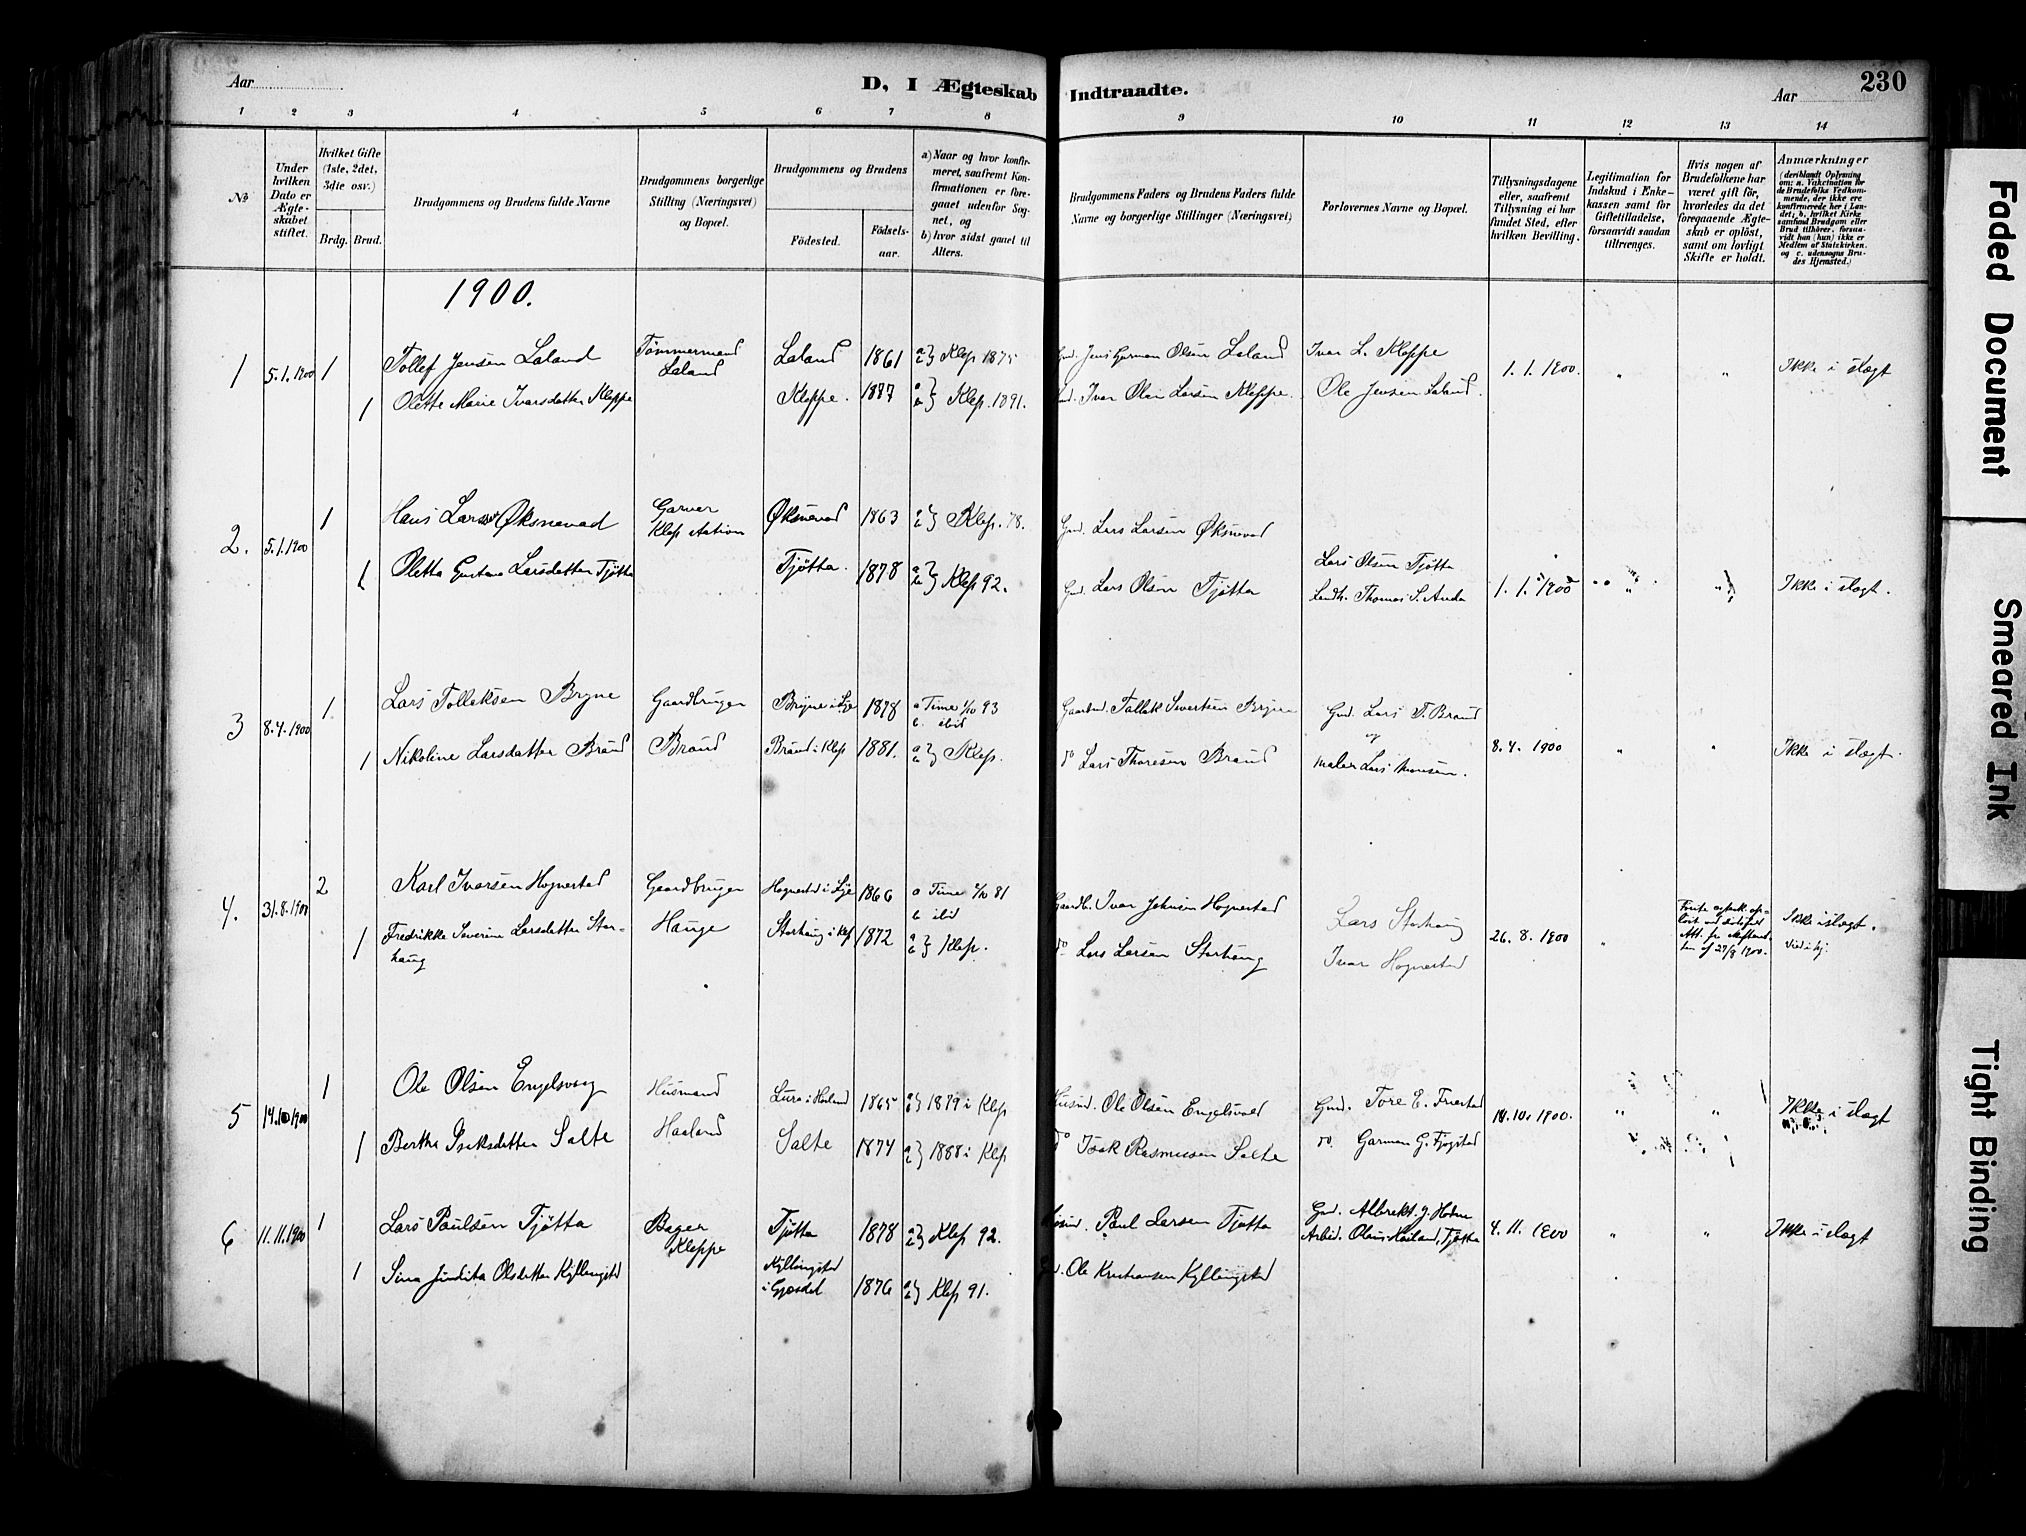 Aar
D, I Ægteskab Indtraadte.
Aar
230
1 2 3 4 5 6 7 8 9 10 11 12 13 14
№
Under hvilken Dato er Ægteskabet stiftet.
Hvilket Gifte (1ste, 2det, 3die osv.)
Brdg. Brud.
Brudgommens og Brudens fulde Navne
Brudgommens borgerlige Stilling (Næringsvei) og Bopæl.
Brudgommens og Brudens
Fødested.
Fødselsaar.
a) Naar og hvor konfirmeret, saafremt Konfirmationen er foregaaet udenfor Sognet, og
b) hvor sidst gaaet til Alters.
Brudgommens Faders og Brudens Faders fulde Navne og borgerlige Stillinger (Næringsvei)
Forlovernes Navne og Bopæl.
Tillysningsdagene eller, saafremt Tillysning ei har fundet Sted, efter hvilken Bevilling.
Legitimation for Indskud i Enkekassen samt for Giftetilladelse, forsaavidt saadan tiltrænges.
Hvis nogen af Brudefolkene har været gift før, hvorledes da det foregaaende Ægteskab er opløst, samt om lovligt Skifte er holdt.
Anmærkninger
(deriblandt Oplysning om: a. Vakcination for de Brudefolks Vedkommende, der ikke ere konfirmerede her i Landet; b. hvilket Kirkesamfund Brudgom eller Brud tilhører, forsaavidt han (hun) ikke er Medlem af Statskirken, og c. udensogns Brudes Hjemsted.)
1900.
1 5.1.1900 1 Tollef Jensen Laland Tømmermand Laland Laland 1861 a b} Klep 1875 Gmd. Jens Garman Olsen Laland Ivar L. Kleppe 1.1.1900. " " Ikke i slægt
1 Olette Marie Ivarsdatter Kleppe Kleppe. 1877 a b} Klep. 1891. Gmd. Ivar Olai Larsen Kleppe. Ole Jensen Laland.
2. 5.1.1900 1 Hans Larsen Øksnevad Garver Klep station Øksnevad 1863 a b} Klep. 78. Gmd. Lars Larsen Øksnevad
1 Oletta Gustava Larsdatter Tjøtta Tjøtta. 1878 a b} Klep 92. Gmd. Lars Olsen Tjøtta Lars Olsen Tjøtta
Landh. Thomas S. Anda 1.1.1900 " " Ikke i slægt.
3 8.4.1900 1 Lars Tolleksen Bryne Gaardbruger Bryne i Lye 1878 a Time 1/10 93 b. ibid Gaardbr. Tallak Sivertsen Bryne Gmd. Lars T. Braud
1 Nikoline Larsdatter Braud Braud Braud i Klep 1881. a b} Klep. do Lars Thoresen Braud og maler Lars Monsen. 8.4.1900 " " Ikke i slægt.
4. 31.8.1900 2 Karl Ivarsen Hognestad Gaardbruger Hognestad i Lye 1866 a Time 2/10 81 b ibid Gaardb. Ivar Johnsen Hognestad Lars Storhaug
1 Fredrikke Severine Larsdatter Storhaug Hauge Storhaug i Klep 1872 a b} Klep. do Lars Larsen Storhaug Ivar Hognestad 26.8.1900 "
af 27/8 1900.
Ikke i slægt.
5 14.10.1900 1 Ole Olsen Engelsvoeg Husmand Lura i Høiland 1865 a b} 1879 i Klep Husmd. Ole Olsen Engelsvold Gmd. Tore E. Friestad 14.10.1900. " " Ikke i slægt
1 Berthe Isaksdatter Salte Haaland Salte 1874 a b} 1888 i Klep do Isak Rasmussen Salte do. Garman G. Tjøgstad
6 11.11.1900 1 Lars Paulsen Tjøtta Bager Kleppe Tjøtta 1878 a b} Klep 92. Husmd. Paul Larsen Tjøtta Gmd. Albrekt J. Hodne
Arbid. Olaus Haaland, Tjøtta 4.11.1900 " " Ikke i slægt
1 Sina Jundita Olsdatter Kyllingstad Kyllingstad i Gjesdal 1876 a b} Klep 91. Gmd. Ole Kristiansen Kyllingstad
Faded Document
Smeared Ink
Tight Binding